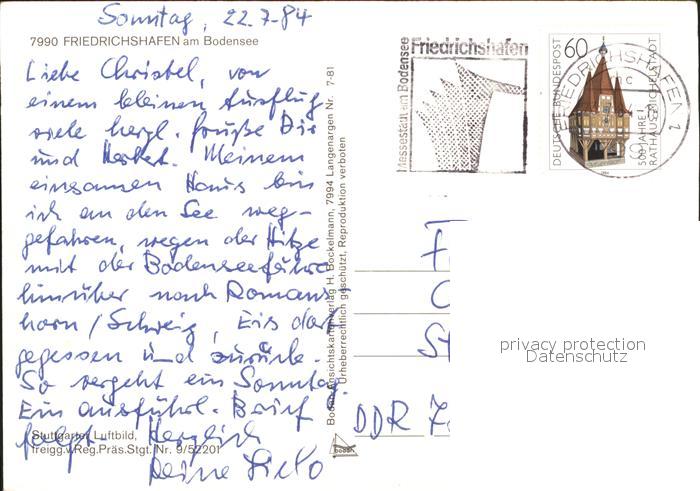 Sonntag, 22.7.84
7990 FRIEDRICHSHAFEN am Bodensee
Liebe Christel, von
einem kleinen Ausflug
viele herzl. Grüße Dir
und Herbert. Meinem
einsamen Haus bin
ich an den See weg-
gefahren, wegen der Hitze
mit der Bodenseefähre
hinüber nach Romans-
horn / Schweiz, Eis dort
gegessen und zurück.
So vergeht ein Sonntag.
Ein ausführl. Brief
folgt. Herzlich
Deine
Stuttgarter Luftbild,
freigg.v.Reg.Präs.Stgt. Nr. 9/52201
Boden-Ansichtskartenverlag H. Bockelmann, 7994 Langenargen Nr. 7-81
Urheberrechtlich geschützt, Reproduktion verboten
Messestadt am Bodensee
Friedrichshafen
60
DEUTSCHE BUNDESPOST
500 JAHRE
RATHAUS MICHELSTADT
FRIEDRICHSHAFEN 1
F
St
DDR 7
privacy protection
Datenschutz